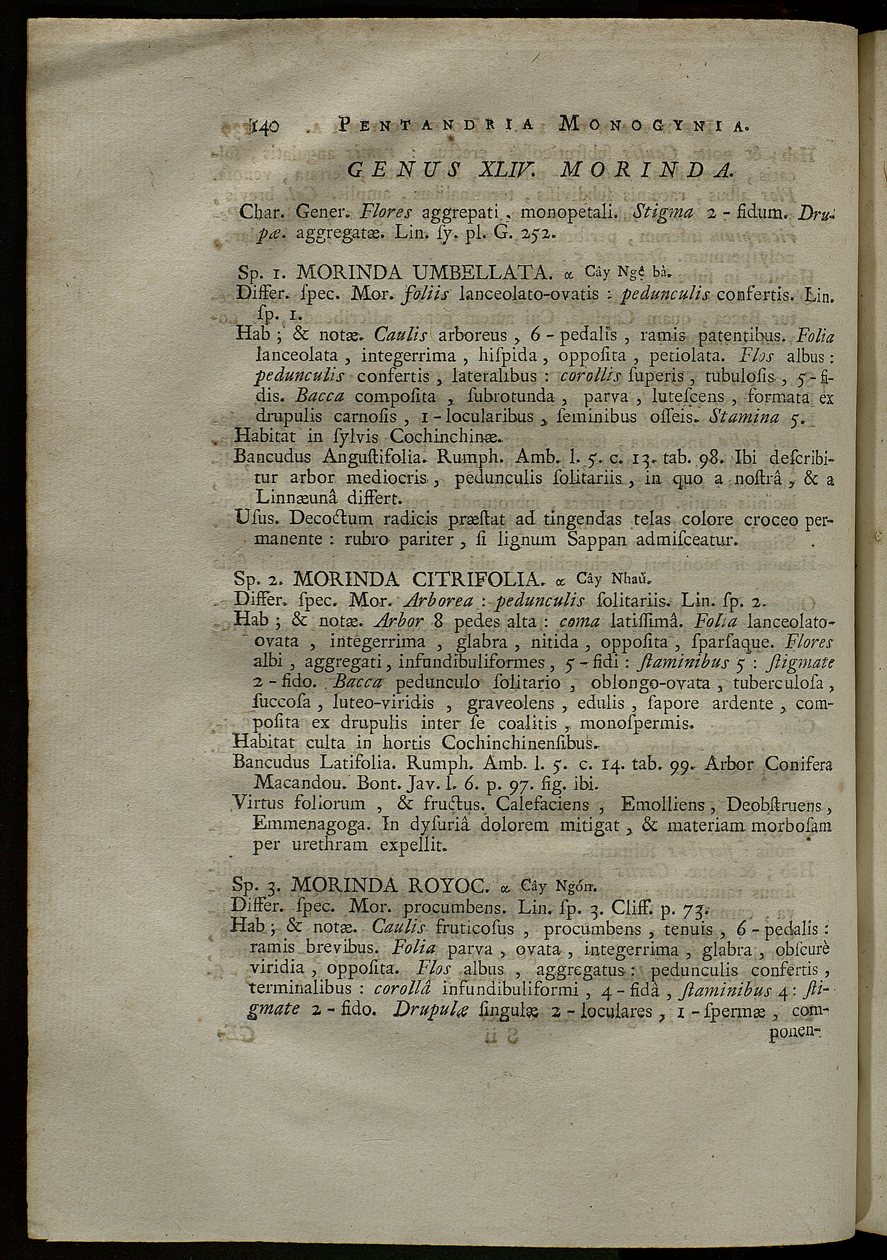 140 PENTANDRIA MONOGYNIA.
GENUS XLIV. MORINDA.
Char. Gener. Flores aggrepati, monopetali. Stigma 2-fidum. Dru-
pæ. aggregatæ. Lin. ſy. pl. G. 252.
Sp. 1. MORINDA UMBELLATA. α Cây Ngê bà.
Differ. ſpec. Mor. foliis lanceolato-ovatis : pedunculis confertis. Lin.
ſp. 1.
Hab ; & notæ. Caulis arboreus , 6-pedalis , ramis patentibus. Folia
lanceolata , integerrima , hiſpida , oppoſita , petiolata. Flos albus :
pedunculis confertis , lateralibus : corollis ſuperis , tubuloſis , 5-fi-
dis. Bacca compoſita , ſubrotunda , parva , luteſcens , formata ex
drupulis carnoſis , 1-locularibus , ſeminibus oſſeis. Stamina 5.
Habitat in ſylvis Cochinchinæ.
Bancudus Anguſtifolia. Rumph. Amb. l. 5. c. 13. tab. 98. Ibi deſcribi-
tur arbor mediocris , pedunculis ſolitariis , in quo a noſtrâ , & a
Linnæunâ differt.
Uſus. Decoctum radicis præſtat ad tingendas telas colore croceo per-
manente : rubro pariter , ſi lignum Sappan admiſceatur.
Sp. 2. MORINDA CITRIFOLIA. α Cây Nhaŭ.
Differ. ſpec. Mor. Arborea : pedunculis ſolitariis. Lin. ſp. 2.
Hab ; & notæ. Arbor 8 pedes alta : coma latiſſimâ. Folia lanceolato-
ovata , integerrima , glabra , nitida , oppoſita , ſparſaque. Flores
albi , aggregati, infundibuliformes , 5-fidi : ſtaminibus 5 : ſtigmate
2-fido. Bacca pedunculo ſolitario , oblongo-ovata , tuberculoſa ,
ſuccoſa , luteo-viridis , graveolens , edulis , ſapore ardente , com-
poſita ex drupulis inter ſe coalitis , monoſpermis.
Habitat culta in hortis Cochinchinenſibus.
Bancudus Latifolia. Rumph. Amb. l. 5. c. 14. tab. 99. Arbor Conifera
Macandou. Bont. Jav. l. 6. p. 97. fig. ibi.
Virtus foliorum , & fructus. Calefaciens , Emolliens , Deobſtruens ,
Emmenagoga. In dyſuriâ dolorem mitigat , & materiam morboſam
per urethram expellit.
Sp. 3. MORINDA ROYOC. α Cây Ngón.
Differ. ſpec. Mor. procumbens. Lin. ſp. 3. Cliff. p. 73.
Hab ; & notæ. Caulis fruticoſus , procumbens , tenuis , 6-pedalis :
ramis brevibus. Folia parva , ovata , integerrima , glabra , obſcurè
viridia , oppoſita. Flos albus , aggregatus : pedunculis confertis ,
terminalibus : corollâ infundibuliformi , 4-fidâ , ſtaminibus 4 : ſti-
gmate 2-fido. Drupulæ ſingulæ 2-loculares , 1-ſpermæ , com-
ponen-